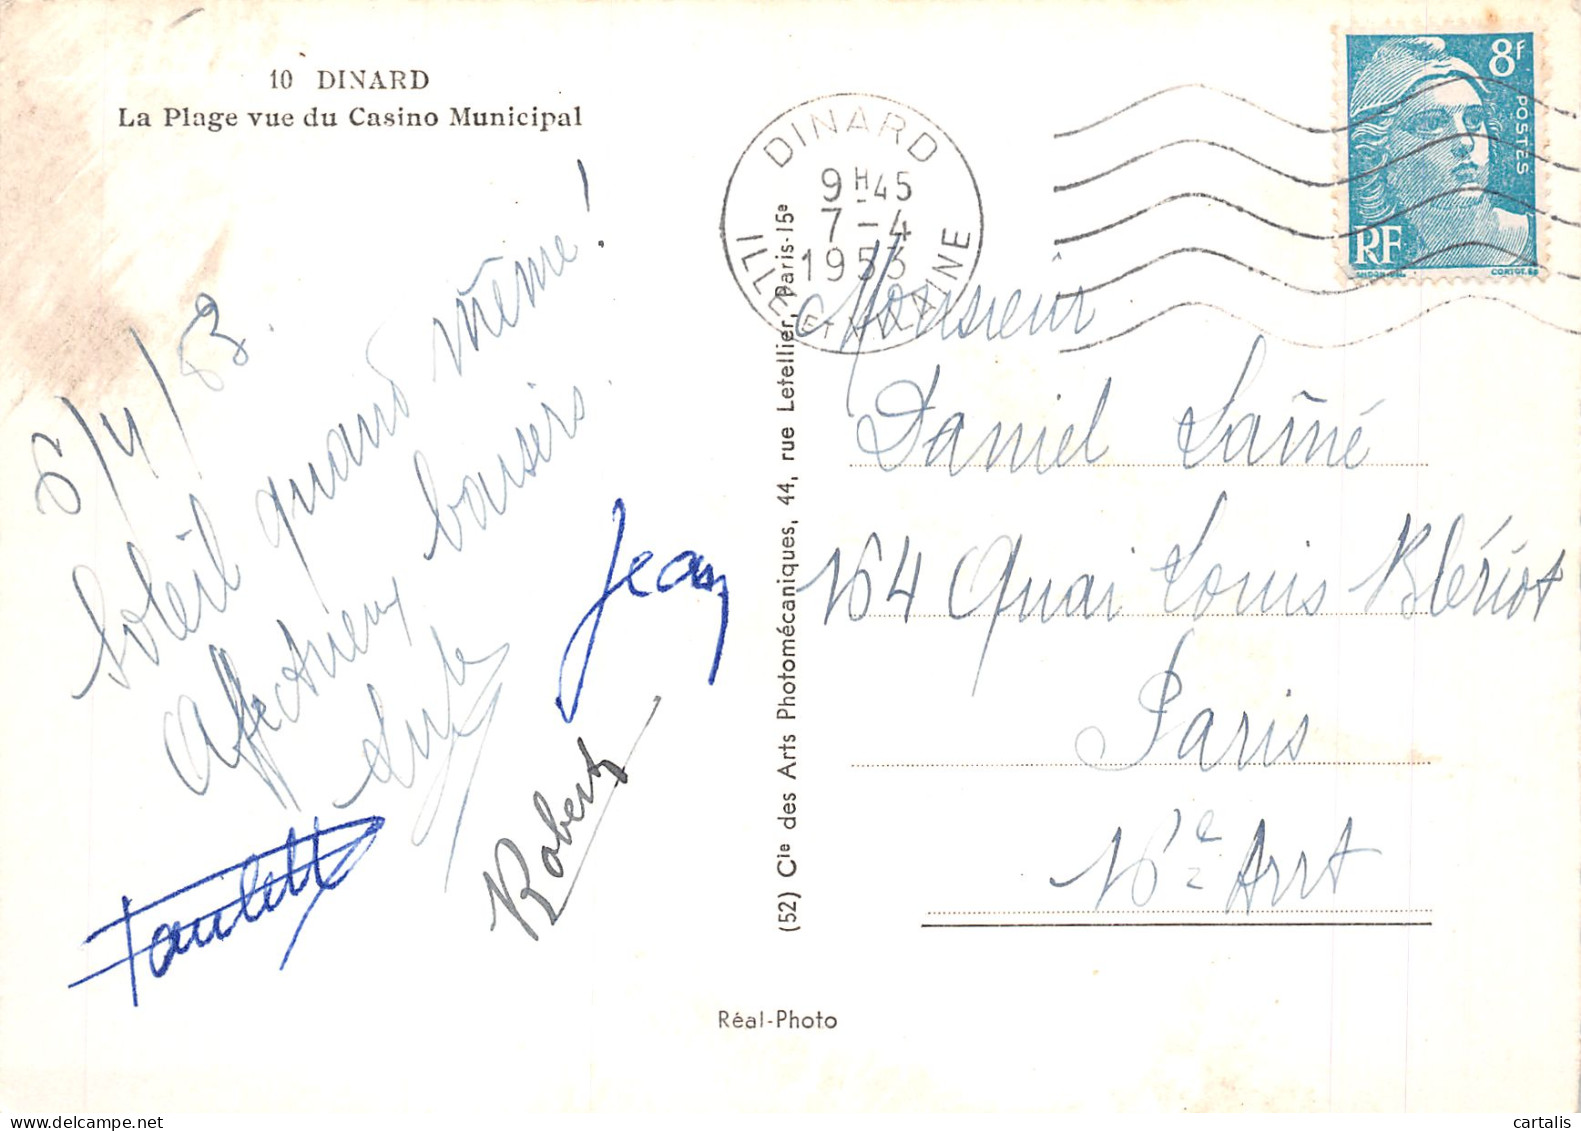 10 DINARD
La Plage vue du Casino Municipal
6/4/53.
Soleil quand même!
Affectueux baisers.
Jean
Robert
Paulette
(52) Cie des Arts Photomécaniques, 44, rue Letellier, Paris-15e
Réal-Photo
DINARD
9H45
7-4
1953
ILLE ET VILAINE
8F
POSTES
RF
GANDON
CORTOT.
Monsieur
Daniel Lainé
164 Quai Louis Blériot
Paris
16e Arrt
cartalis